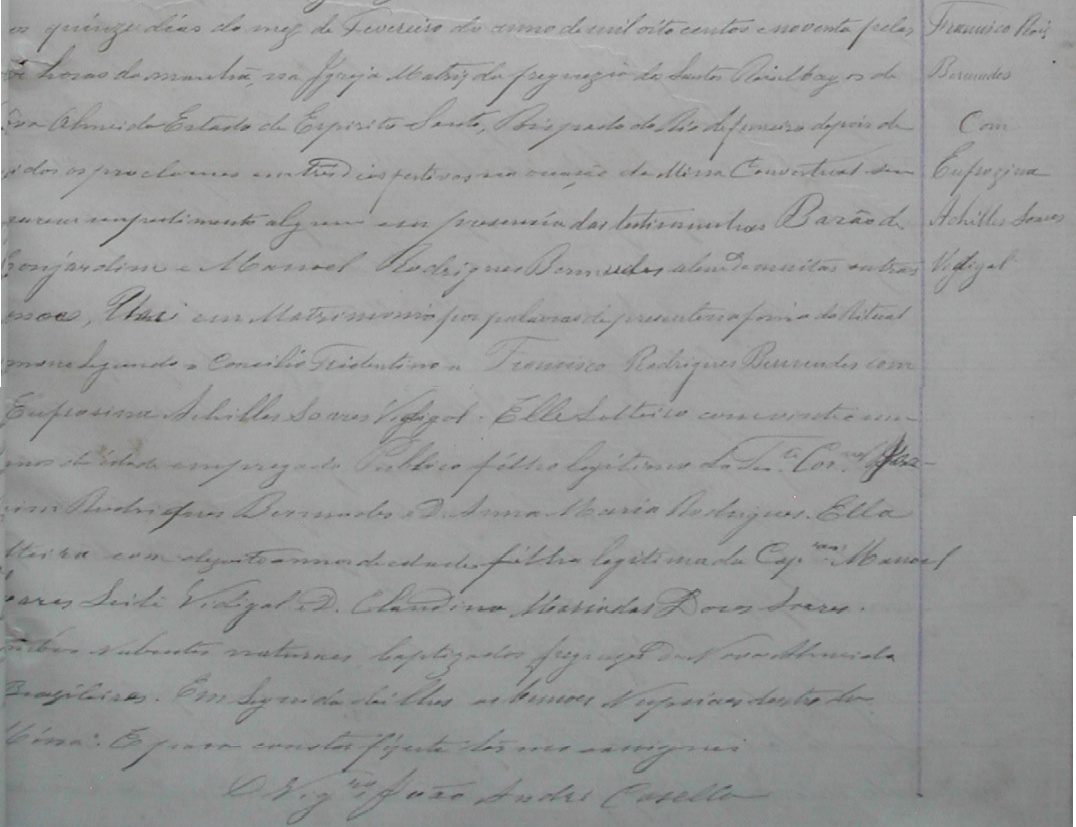 os quinze dias do mez de Fevereiro do anno de mil oito centos e noventa pelas
horas da manhã, na Igreja Matriz da freguezia dos Santos Reis Magos de
Nova Almeida Estado do Espirito Santo, Bispado do Rio de Janeiro depois de
lidos os proclamas em tres dias festivos na occasião da Missa Conventual sem
impedimento algum em presencia das testimunhas Barão de
Monjardim e Manoel Rodrigues Bermudes alem de muitas outras
Uni em Matrimonio por palavras de presente na forma do Ritual
segundo o Concilio Tridentino a Francisco Rodrigues Bermudes com
Euprosina Achilles Soares Vidigal. Elle Solteiro com vinte e um
annos de idade empregado Publico filho legitimo do Ten.te Cor.nel
Rodrigues Bermudes e D. Anna Maria Rodrigues. Ella
Solteira com dezoito annos de idade filha legitima do Cap.am Manoel
Soares Leite Vidigal e D. Claudina Maria das Dores Soares.
ambos Nubentes naturaes baptizados freguezia de Nova Almeida
Brazileiros. Em Seguida dei lhes as bençoes Nupciaes dentro da
Missa. E para constar fiz este que me assignei
O Vig.ro João André Casella
Francisco Roiz
Bermudes
Com
Eufrozina
Achilles Soares
Vidigal